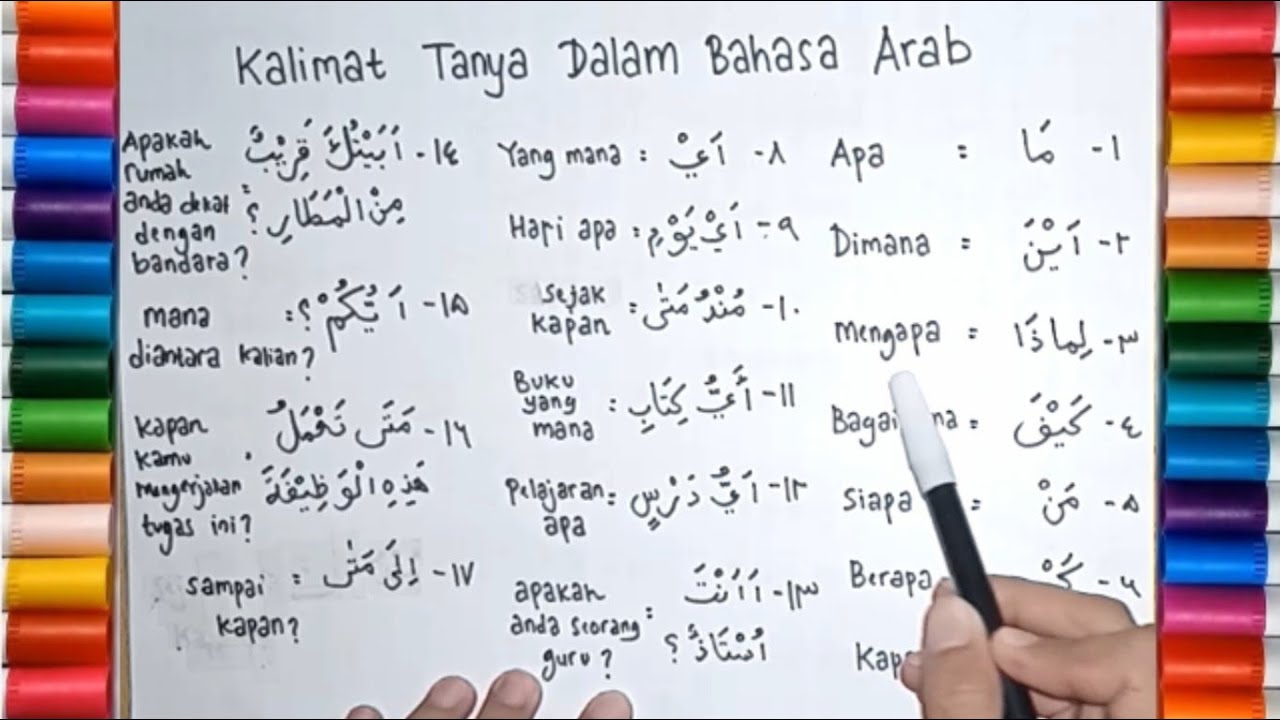 Kalimat Tanya Dalam Bahasa Arab
١- مَا : Apa
٢- اَيْنَ : Dimana
٣- لِماذَا : Mengapa
٤- كَيْفَ :
٥- مَنْ : Siapa
٦- Berapa
٨- اَيْ : Yang mana
٩- اَيْ يَوْمِ : Hari apa
١٠- مُنْدُ مَتٰى : Sejak
kapan
١١- أَيُّ كِتَابِ : Buku
yang
mana
١٢- اَيُّ دَرْسٍ : Pelajaran
apa
١٣- اَاَنْتَ : apakah
anda seorang
اُسْتَاذٌ ؟ guru?
١٤- اَبَيْتُكَ قَرِيْبٌ : Apakah
rumah
مِنْ الْمَطَارِ ؟ anda dekat
dengan
bandara?
١٥- اَيُّكُمْ ؟ : mana
diantara kalian?
١٦- مَتَى تَعْمَلُ : kapan
kamu
هَذِهِ الْوَظِيْفَةَ mengerjakan
tugas ini?
١٧- اِلَى مَتٰى : sampai
kapan?